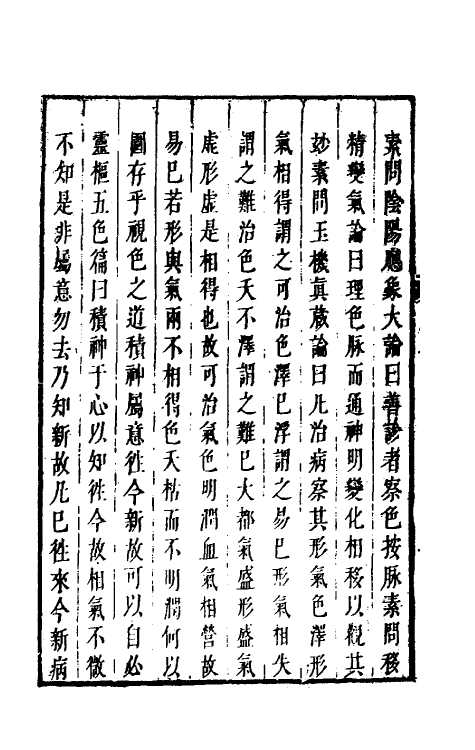 素問陰陽應象大論曰善診者察色按脉素問移
精變氣論曰理色脉而通神明變化相移以觀其
妙素問玉機真藏論曰凡治病察其形氣色澤形
氣相得謂之可治色澤已浮謂之易已形氣相失
謂之難治色夭不澤謂之難已大都氣盛形盛氣
虛形虛是相得也故可治氣色明潤血氣相營故
易已若形與氣兩不相得色夭枯而不明潤何以
圖存乎視色之道積神屬意徃今新故可以自必
靈樞五色篇曰積神于心以知徃今故相氣不微
不知是非屬意勿去乃知新故凡已徃來今新病